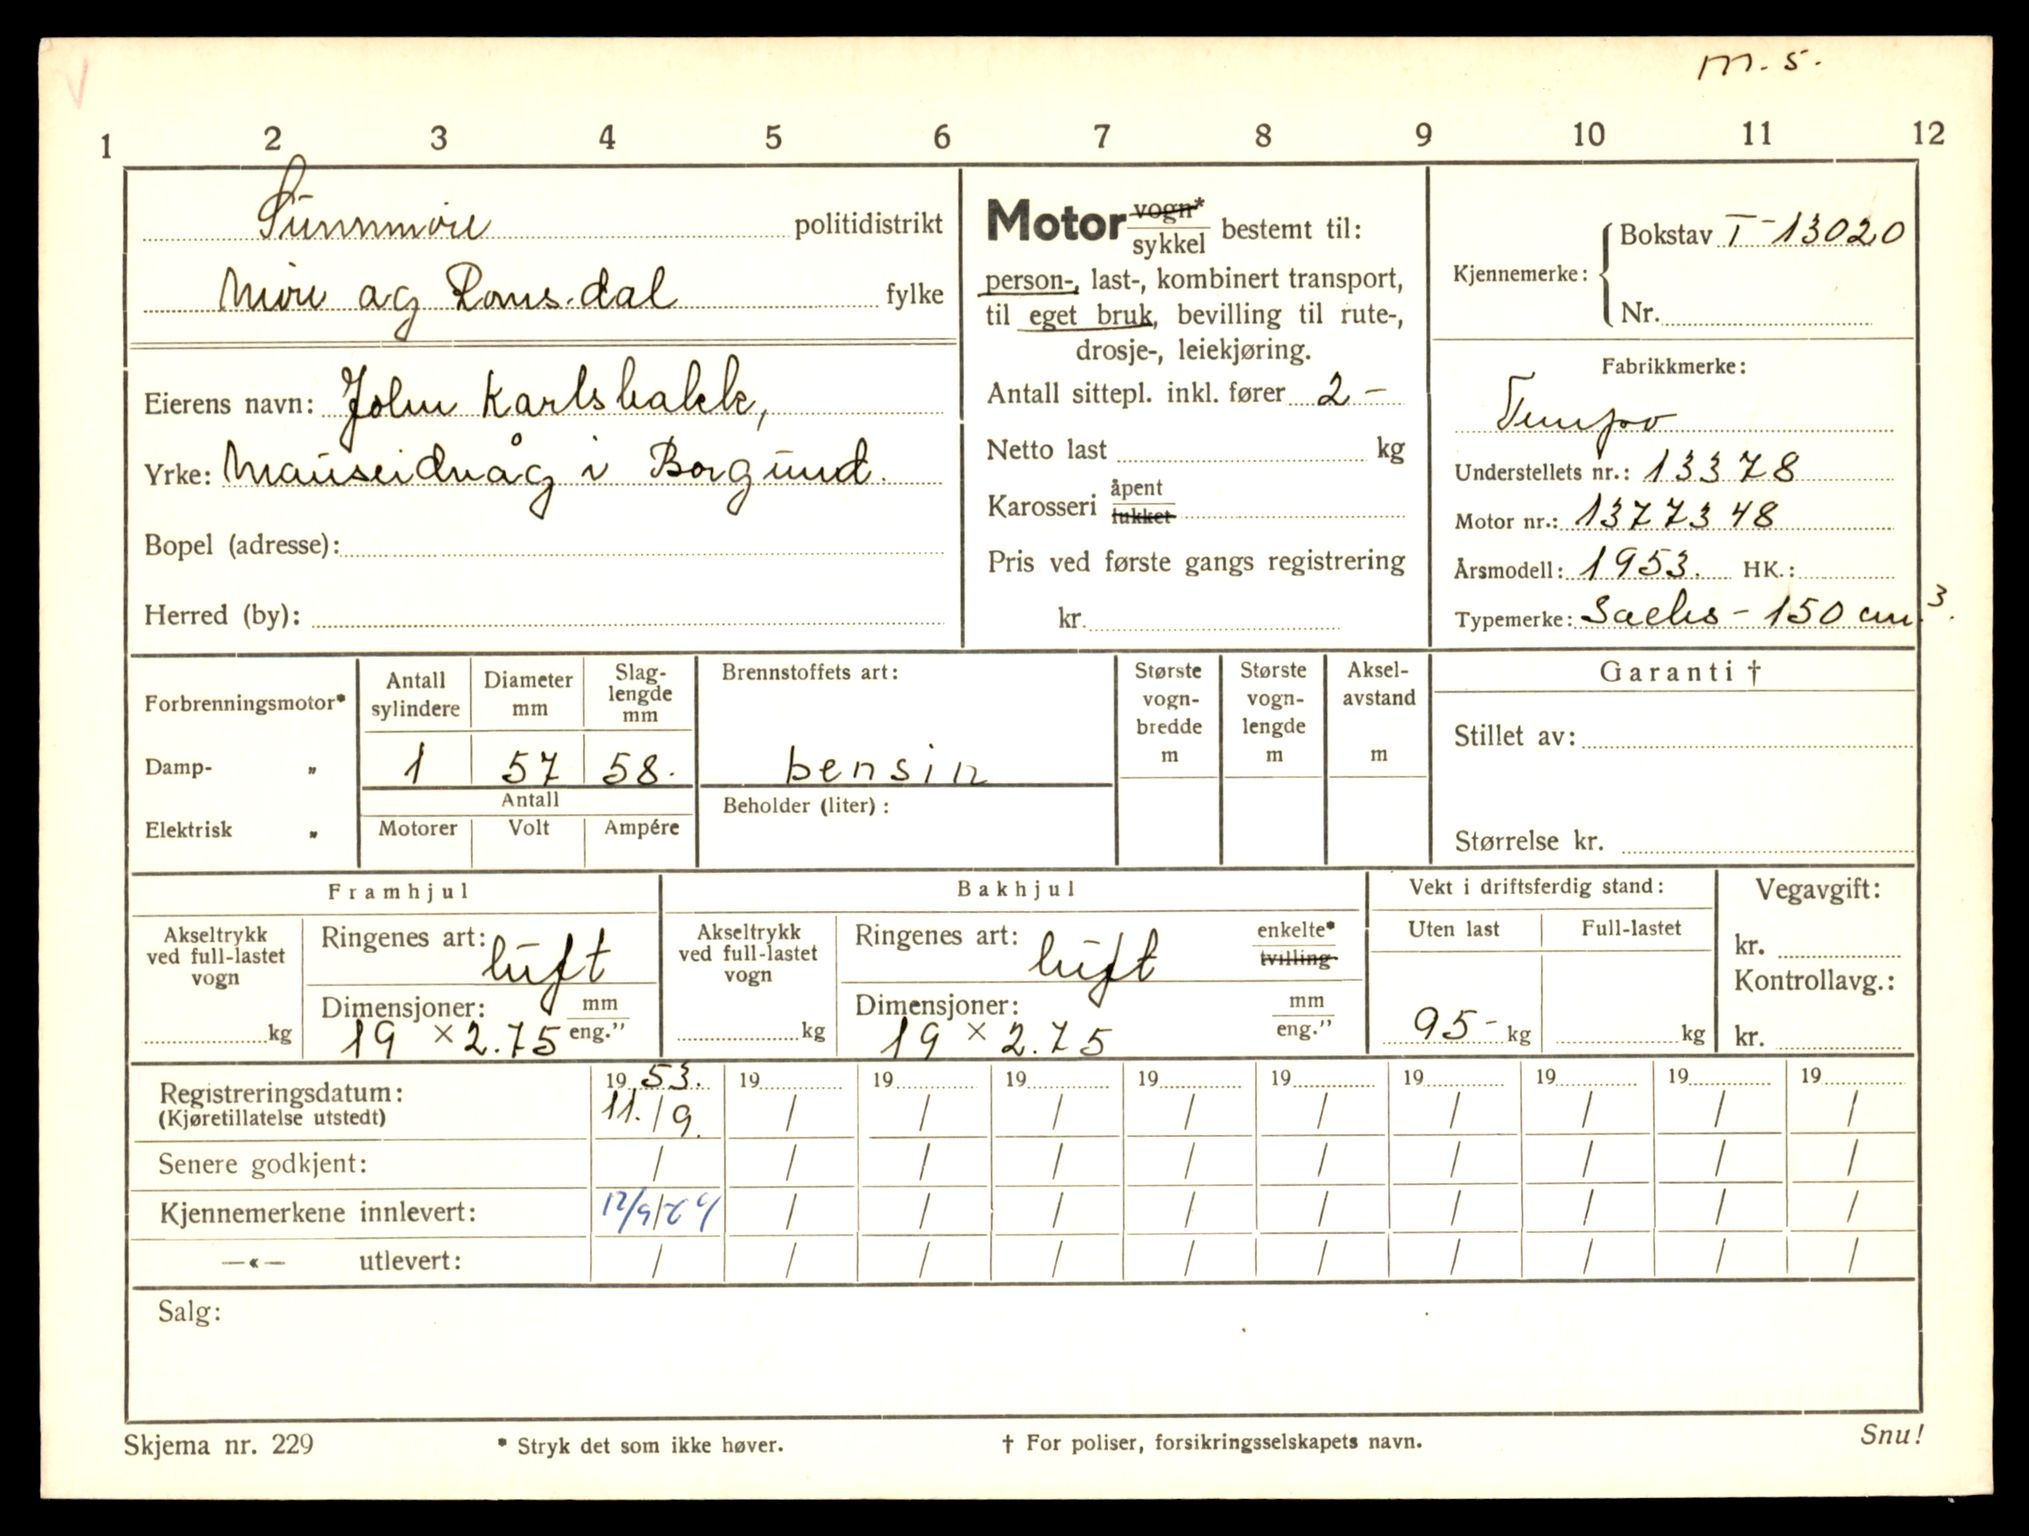 m. s.
1 2 3 4 5 6 7 8 9 10 11 12
Sunnmøre politidistrikt
Møre og Romsdal fylke
Eierens navn: John Karlsbakk,
Yrke: Mauseidvåg i Borgund.
Bopel (adresse):
Herred (by):
Motor vogn* / sykkel bestemt til:
person-, last-, kombinert transport,
til eget bruk, bevilling til rute-,
drosje-, leiekjøring.
Antall sittepl. inkl. fører 2 -
Netto last kg
Karosseri åpent / lukket
Pris ved første gangs registrering
kr.
Kjennemerke: Bokstav T-13020
Nr.
Fabrikkmerke:
Tempo
Understellets nr.: 13378
Motor nr.: 1377348
Årsmodell: 1953. HK.:
Typemerke: Sachs - 150 cm³.
Forbrenningsmotor*
Damp- „
Elektrisk „
Antall sylindere
Diameter mm
Slag-lengde mm
1 57 58.
Antall
Motorer Volt Ampére
Brennstoffets art:
bensin
Beholder (liter):
Største vogn-bredde m
Største vogn-lengde m
Aksel-avstand m
Garanti †
Stillet av:
Størrelse kr.
Framhjul
Akseltrykk ved full-lastet vogn
kg
Ringenes art: luft
Dimensjoner: mm / eng."
19 × 2.75
Bakhjul
Akseltrykk ved full-lastet vogn
kg
Ringenes art: luft enkelte* / tvilling
Dimensjoner: mm / eng."
19 × 2.75
Vekt i driftsferdig stand:
Uten last Full-lastet
95- kg kg
Vegavgift:
kr.
Kontrollavg.:
kr.
Registreringsdatum: 19 53. 19 19 19 19 19 19 19 19 19
(Kjøretillatelse utstedt) 11. / 9. / / / / / / / / /
Senere godkjent: / / / / / / / / / /
Kjennemerkene innlevert: / / / / / / / / /
—«— utlevert: / / / / / / / / / /
Salg:
Skjema nr. 229 * Stryk det som ikke høver. † For poliser, forsikringsselskapets navn. Snu!